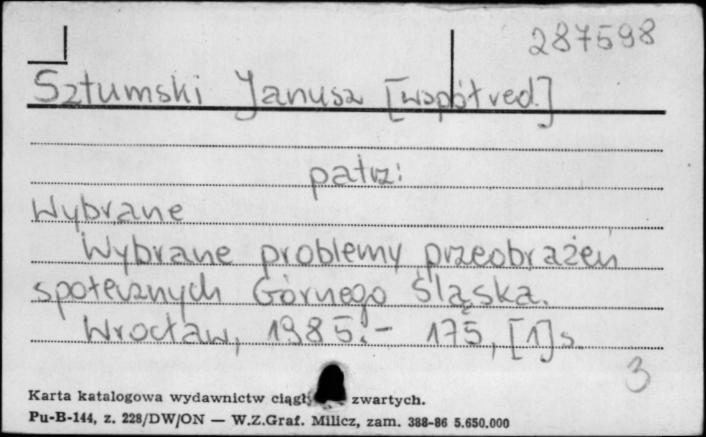 287598
Sztumski Janusz [współred.]
patrz:
Wybrane
Wybrane problemy przeobrażeń
społecznych Górnego Śląska.
Wrocław, 1985.- 175, [1] s.
3
Karta katalogowa wydawnictw zwartych.
Pu-B-144, z. 228/DW/ON — W.Z.Graf. Milicz, zam. 388-86 5.650.000